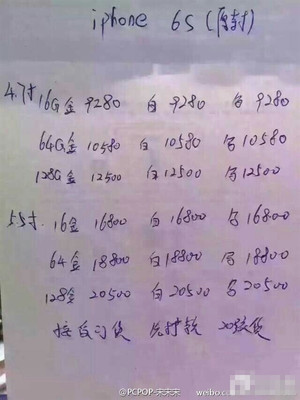 iphone 6S (原封)
4.7寸 16G金 9280 白 9280 9280
64G金 10580 白 10580 10580
128G金 12500 白 12500 12500
5.5寸 16金 16800 白 16800 16800
64金 18800 白 18800 18800
128金 20500 白 20500 20500
接受订货 先打款 20号货
@PCPOP-宋宋宋
weibo.